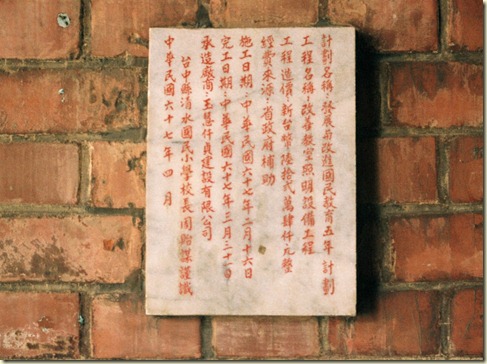 計劃名稱：發展與改進國民教育五年計劃
工程名稱：改善教室照明設備工程
工程造價：新台幣陸拾貳萬肆仟元整
經費來源：省政府補助
施工日期：中華民國六十七年二月十六日
完工日期：中華民國六十七年三月三十日
承造廠商：建設有限公司
台中縣清水國民小學校長周貽謀謹識
中華民國六十七年四月